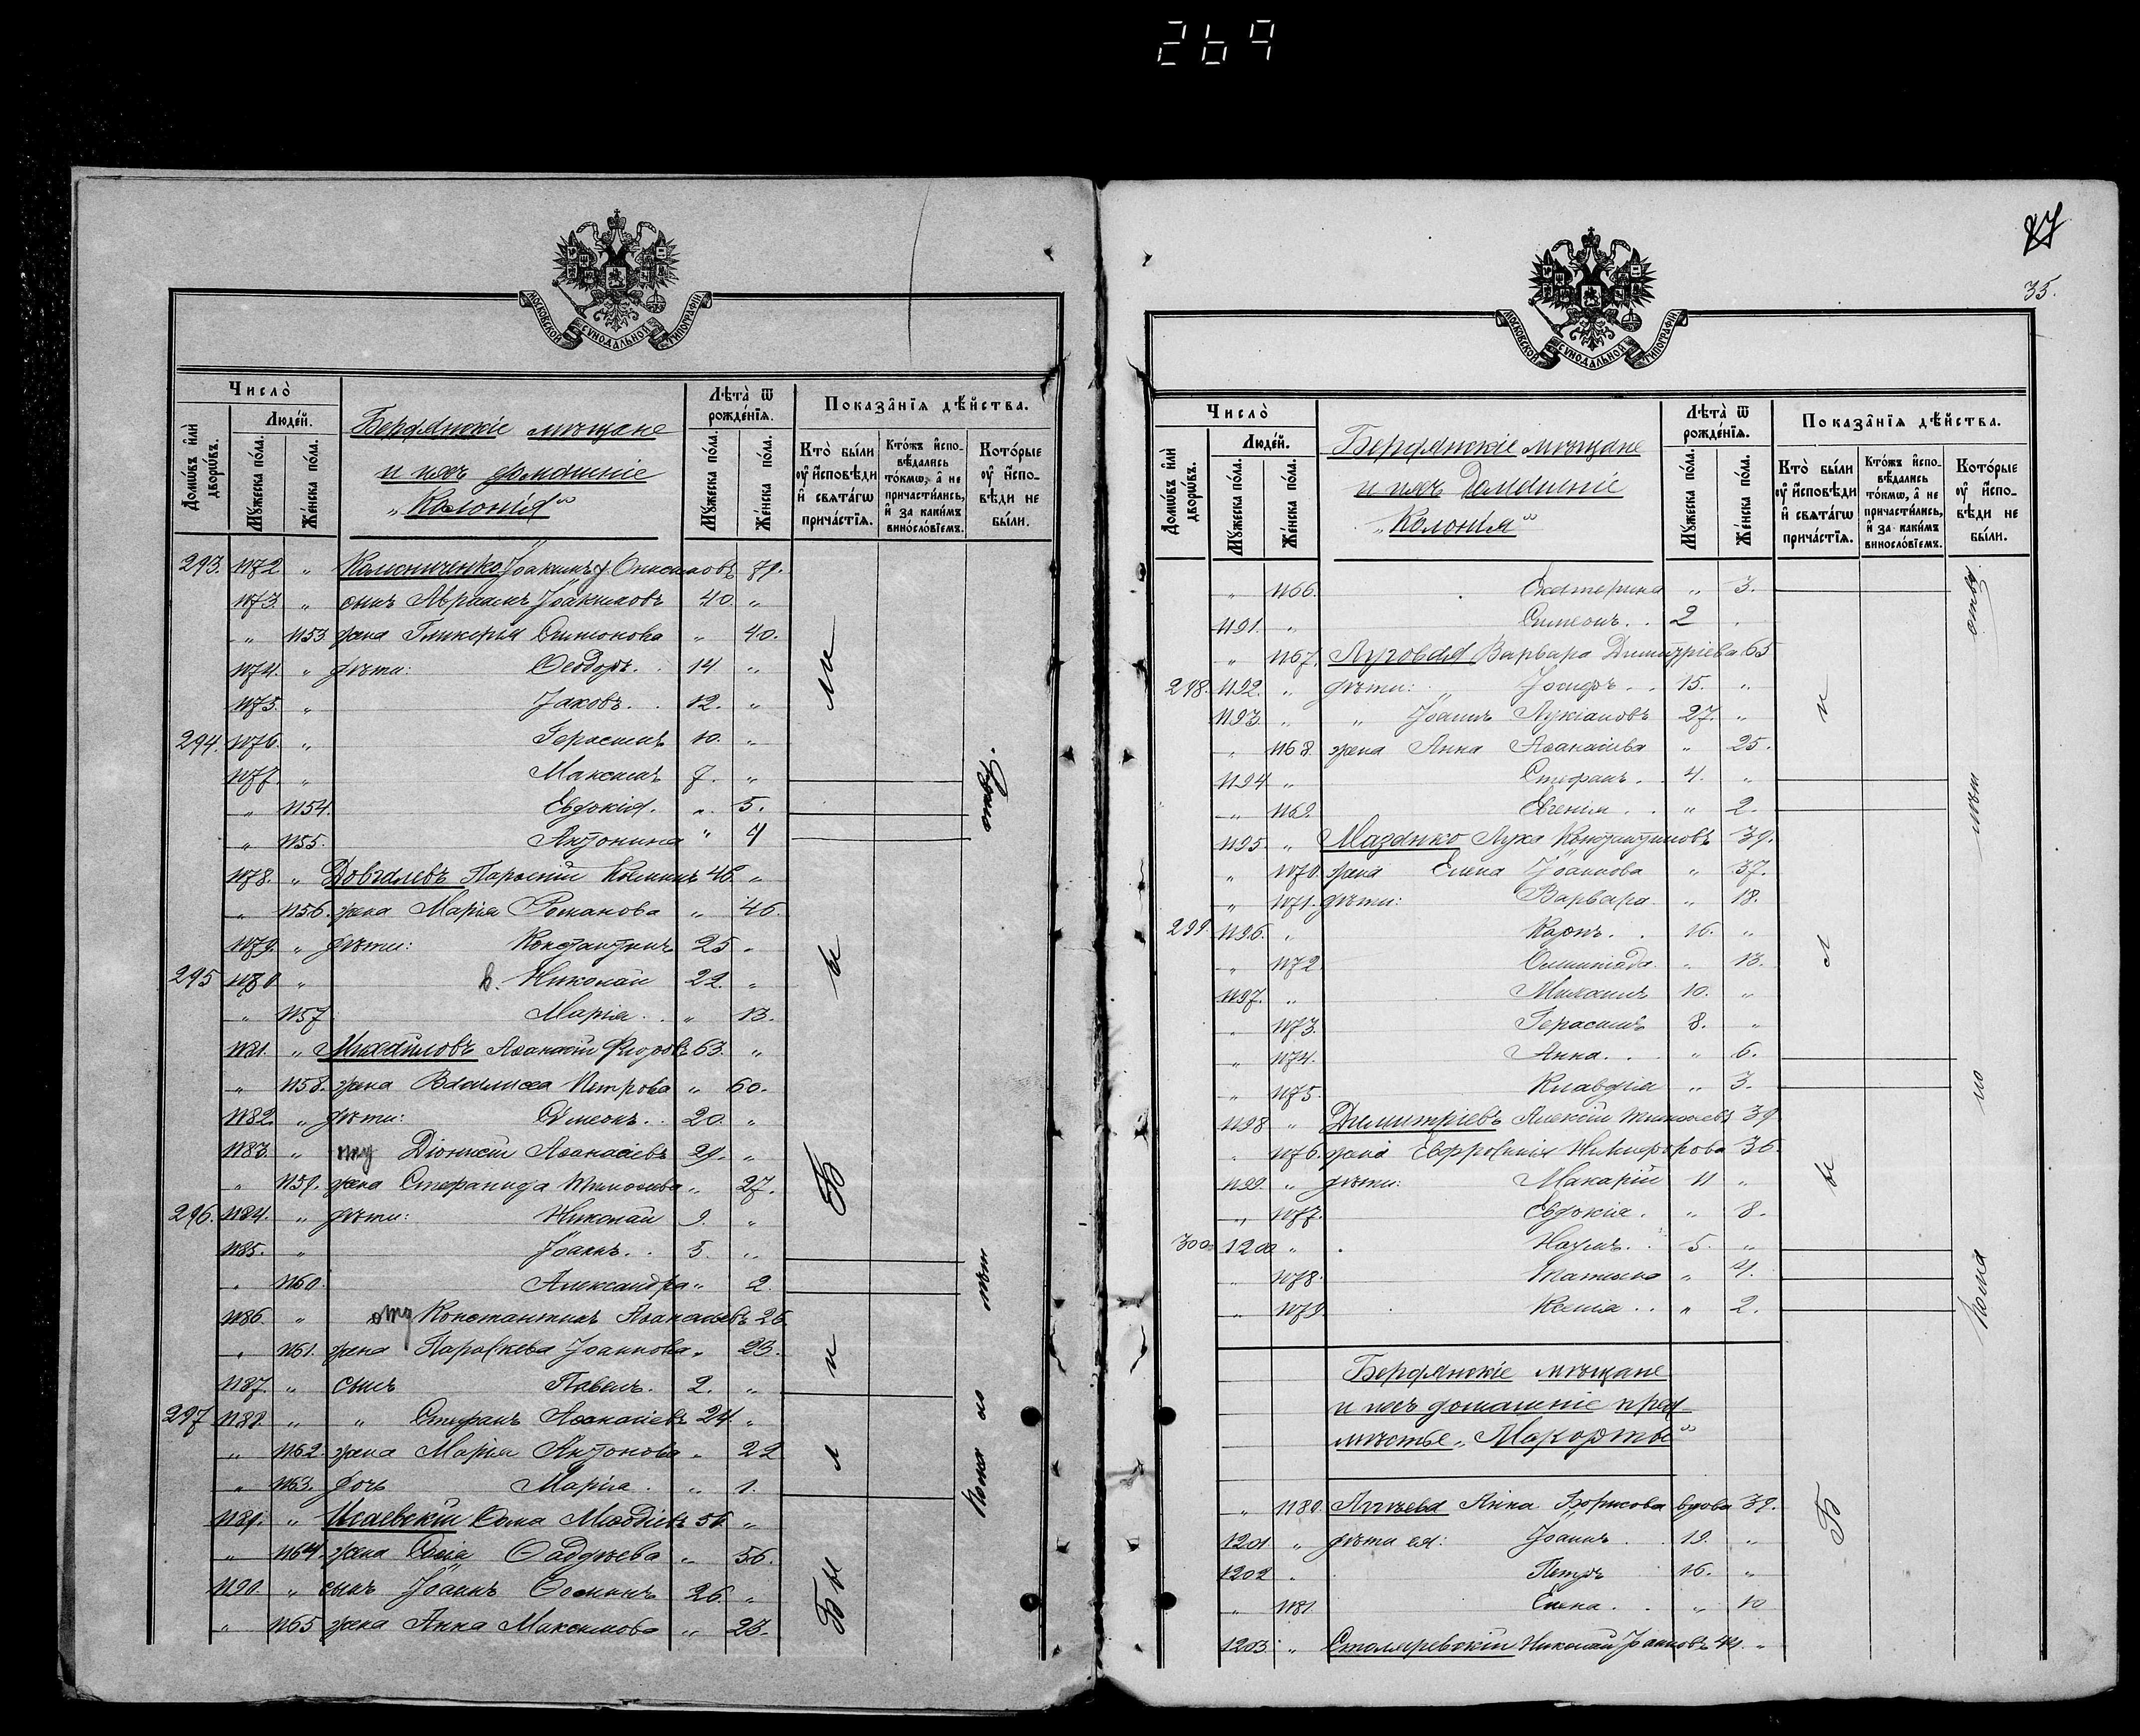 269
МОСКОВСКОЙ СѴНОДАЛЬНОЙ ТИПОГРАФІИ
Число̀
Людéй.
Домѡ́въ и҆лѝ дворѡ́въ.
Мꙋ́жеска по́ла.
Же́нска по́ла.
Бердянскіе мѣщане
и ихъ домашніе
„Колонія"
Лѣта̀ ѿ рожде́нїѧ.
Мꙋ́жеска по́ла.
Же́нска по́ла.
Показа̂нїѧ дѣ́йства.
Кто̀ бы́ли ᲂу҆ и҆сповѣ́ди и҆ свѧта́гѡ прича́стїѧ.
Кто́жъ и҆спо-вѣ́дались то́кмѡ, а҆ не причасти́лись, и҆ за каки́мъ виносло́вїемъ.
Кото́рые ᲂу҆ и҆спо-вѣ́ди не бы́ли.
293. 1172 „ Іоакимъ Онисимовъ 79.
1173. „ сынъ Авраамъ Іоакимовъ 40. „
„ 1153 жена Гликерія Симонова „ 40.
1174. „ дѣти: Ѳеодоръ. 14 „
1175. „ Іаковъ. 12. „
294. 1176. „ Герасимъ 10. „
1177. „ Максимъ 7. „
„ 1154. Евдокія. „ 5.
„ 1155. Антонина „ 4
1178. „ Довгалевъ 46 „
„ 1156. жена Марія Романова „ 46.
1179. „ дѣти: Константинъ 25 „
295 1180 „ в. Николай 22. „
„ 1157 Марія. „ 13.
1181. „ Михайловъ Аѳанасій 63. „
„ 1158. жена Василиса Петрова „ 60.
1182. „ дѣти: Симеонъ. 20. „
1183. „ Діонисій Аѳанасіевъ 29. „
„ 1159. жена Стефанида Тимоѳеева „ 27.
296. 1184. „ дѣти: Николай 9. „
1185. „ Іоаннъ. 5. „
„ 1160. Александра „ 2.
1186. „ Константинъ Аѳанасьевъ 26
„ 1161. жена Параскева Іоаннова „ 23.
1187. „ сынъ Павелъ. 2. „
297 1188. „ „ Стефанъ Аѳанасіевъ 24 „
„ 1162. жена Марія Антонова „ 22
„ 1163. дочь Марія. „ 1.
1189. „ Исаевскій Ѳома 56 „
„ 1164. жена Ѳаддѣева „ 56.
1190. „ сынъ Іоаннъ Ѳоминъ 26. „
„ 1165 жена Анна Максимова „ 23.
Бы ли
Б ы ли
Кома но нѣт отву.
35.
МОСКОВСКОЙ СѴНОДАЛЬНОЙ ТИПОГРАФІИ
Число̀
Людéй.
Домѡ́въ и҆лѝ дворѡ́въ.
Мꙋ́жеска по́ла.
Же́нска по́ла.
Бердянскіе мѣщане
и ихъ домашніе
„Колонія"
Лѣта̀ ѿ рожде́нїѧ.
Мꙋ́жеска по́ла.
Же́нска по́ла.
Показа̂нїѧ дѣ́йства.
Кто̀ бы́ли ᲂу҆ и҆сповѣ́ди и҆ свѧта́гѡ прича́стїѧ.
Кто́жъ и҆спо-вѣ́дались то́кмѡ, а҆ не причасти́лись, и҆ за каки́мъ виносло́вїемъ.
Кото́рые ᲂу҆ и҆спо-вѣ́ди не бы́ли.
„ 1166. Екатерина „ 3.
1191. „ Симеонъ. 2 „
„ 1167. Луговая Варвара Димитріева 65
298. 1192. „ дѣти: „ Іосифъ. 15. „
1193. „ „ Іоаннъ Лукіановъ 27. „
„ 1168. жена Анна Аѳанасіева „ 25.
1194 „ Стефанъ. 4. „
„ 1169. Евгенія. „ 2.
1195. „ Мазанко Лука Константиновъ 39.
„ 1170. жена Елена Іоаннова „ 37.
„ 1171. дѣти: Варвара. „ 18.
299. 1196. „ Карпъ. 16. „
„ 1172 Олимпіада. „ 13.
1197. „ Михаилъ 10. „
„ 1173. Герасимъ 8. „
„ 1174. Анна. „ 6.
„ 1175. Клавдія „ 3.
1198 „ Димитріевъ Алексій 39
„ 1176. жена Евфросинія Никифорова 36.
1199. „ дѣти: Макарій 11 „
„ 1177. Евдокія. „ 8.
300. 1200 „ Наумъ. 5. „
„ 1178. Татьяна „ 4.
„ 1179. Ксенія. „ 2.
Бердянскіе мѣщане
и ихъ домашніе пред
мѣстье „Макорты"
„ 1180. Анна Борисова вдова 39.
1201 „ дѣти ея: Іоаннъ. 19. „
1202 „ Петръ 16. „
„ 1181 Елена. „ 10
1203. „ Столяревскій Николай Іоанновъ 44. „
Б ы л и
Кома но нѣт отву.